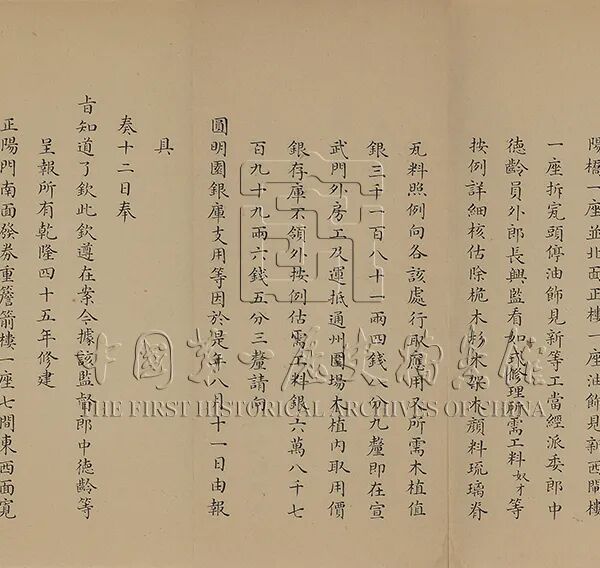 陽橋一座並北面正樓一座油飾見新西閘樓
一座拆宽頭停油飾見新等工當經派委郎中
德齡員外郎長興監看如式修理所需工料奴才等
按例詳細核估除桅木杉木架木顏料琉璃脊
瓦料照例向各該處行取應用又所需木植值
銀三千一百八十一兩四錢八分九釐即在宣
武門外房工及運抵通州圍場木植內取用價
銀存庫不領外按例估需工料銀六萬八千七
百九十九兩六錢五分三釐請向
圓明園銀庫支用等因於是年八月十一日由報
具
奏十二日奉
旨知道了欽此欽遵在案今據該監督郎中德齡等
呈報所有乾隆四十五年修建
正陽門南面發券重簷箭樓一座七間東西面寬
中國第一歷史檔案館
THE FIRST HISTORICAL ARCHIVES OF CHINA